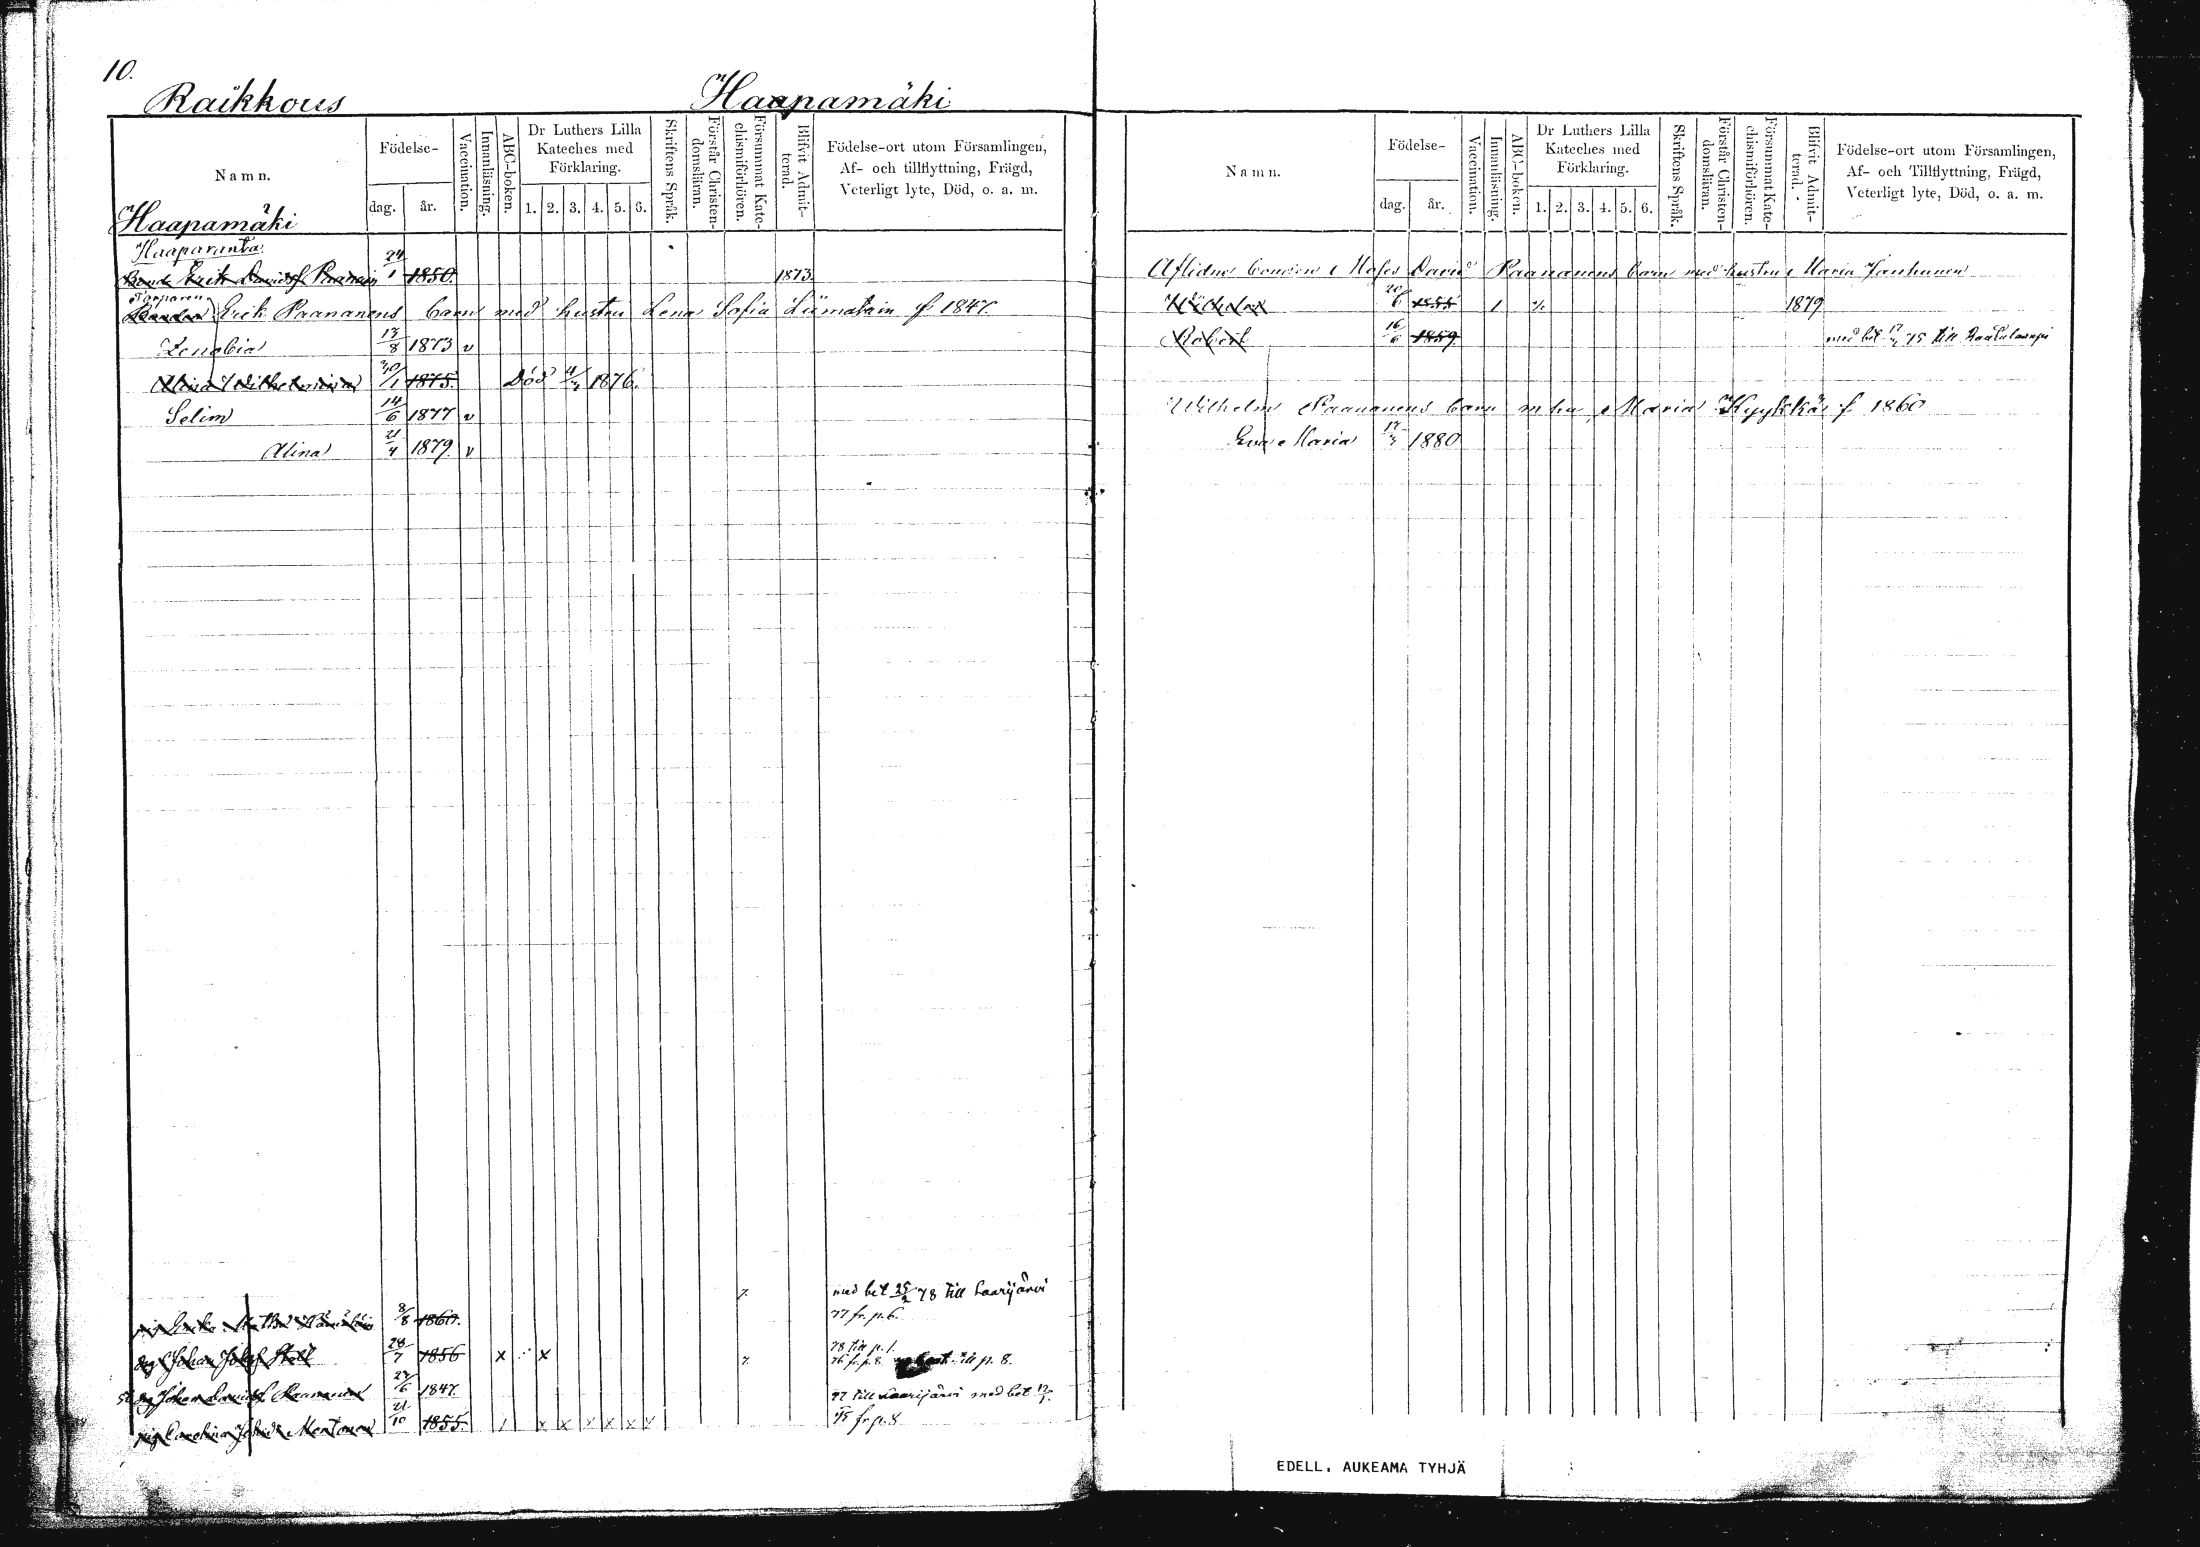 10.
Raikkous Haapamäki
Namn. Födelse- dag. år. Vaccination. Innanläsning. ABC-boken. Dr Luthers Lilla Kateches med Förklaring. 1. 2. 3. 4. 5. 6. Skriftens Språk. Förstår Christendomsläran. Försummat Katechismiförhören. Blifvit Admitterad. Födelse-ort utom Församlingen, Af- och tillflyttning, Frägd, Veterligt lyte, Död, o. a. m.
Haapamäki
Haaparanta
Bonde Erik Davidsf Paananen 24/1 1850. 1873
Torparen
Bonden Erik Paananens barn med hustru Lena Sofia Liimatain f 1847.
Zenobia 13/8 1873 v
Alina Wilhelmina 30/1 1875. Död 1876.
Selim 14/6 1877 v
Alina 21/4 1879 v
med bet 25/2 78 till Saarijärvi
8/8 1860. 77 fr. p. 6.
78 till p. 1.
drg Johan Josef 28/7 1856 x x 76 fr. p. 8. till p. 8.
drg Johan Davidsf Paananen 27/6 1847. 77 till Saarijärvi med bet
pig Carolina 21/10 1855. 1 x x x x x x 75 fr p. 8
Namn. Födelse- dag. år. Vaccination. Innanläsning. ABC-boken. Dr Luthers Lilla Kateches med Förklaring. 1. 2. 3. 4. 5. 6. Skriftens Språk. Förstår Christendomsläran. Försummat Katechismiförhören. Blifvit Admitterad. Födelse-ort utom Församlingen, Af- och Tillflyttning, Frägd, Veterligt lyte, Död, o. a. m.
Aflidne bonden Moses David Paananens barn med hustru Maria Janhunen
20/6 1855 1 1879
Robert 16/6 1859 med bet 75 till Rautalampi
Wilhelm Paananens barn m hu Maria Kyykkä f 1860
Eva Maria 17/3 1880
EDELL. AUKEAMA TYHJÄ